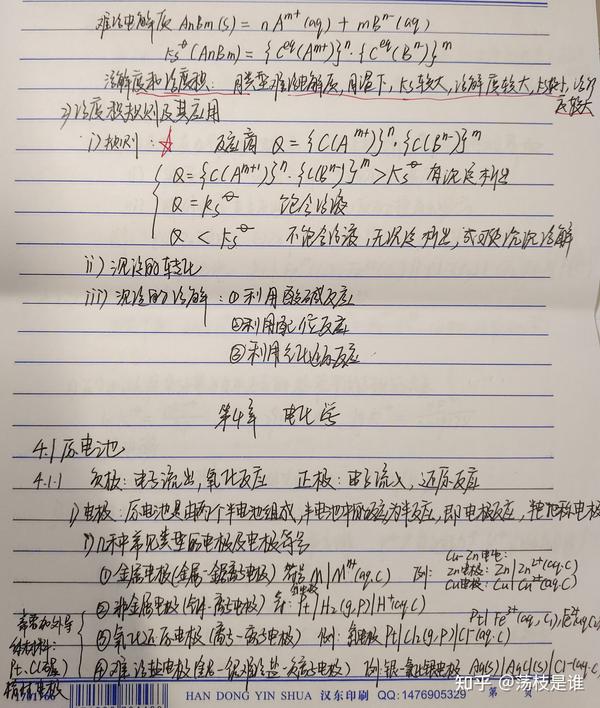 难溶电解质 AnBm(s) = nA^m+(aq) + mB^n-(aq)
Ks^θ(AnBm) = {C^eq(A^m+)}^n · {C^eq(B^n-)}^m
溶解度和溶度积: 同类型难溶电解质,同温下,Ks较大,溶解度较大,
度较大
2)溶度积规则及其应用
i)规则: ☆ 反应商 Q = {C(A^m+)}^n · {C(B^n-)}^m
Q = {C(A^m+)}^n · {C(B^n-)}^m > Ks^θ 有沉淀析出
Q = Ks^θ 饱和溶液
Q < Ks^θ 不饱和溶液,无沉淀析出,或可使沉淀溶解
ii)沉淀的转化
iii)沉淀的溶解: ①利用酸碱反应
②利用配位反应
③利用氧化还原反应
第4章 电化学
4.1原电池
4.1.1 负极: 电子流出,氧化反应 正极: 电子流入,还原反应
i)电极: 原电池是由两个半电池组成,半电池中的反应为半反应,即电极反应,
几种常见类型的电极及电极符号
Cu-Zn电池:
①金属电极(金属-金属离子电极) 符号 M|M^n+(aq.c) 例: Zn电极: Zn|Zn^2+(aq.c)
Cu电极: Cu|Cu^2+(aq.c)
②非金属电极(气体-离子电极) Pt|H2(g,p)|H^+(aq.c)
Pt|Fe^2+(aq, c1), Fe^3+(aq, c2)
③氧化还原电极(离子-离子电极) 例: 氯电极 Pt|Cl2(g,p)|Cl^-(aq.c)
④难溶盐电极 例:银-氯化银电极 Ag(s)|AgCl(s)|Cl^-(aq.c)
需要外加导
体材料:
Pt、C(石墨)
惰性电极
HAN DONG YIN SHUA 汉东印刷 QQ:1476905329 第 页
知乎 @荡枝是谁